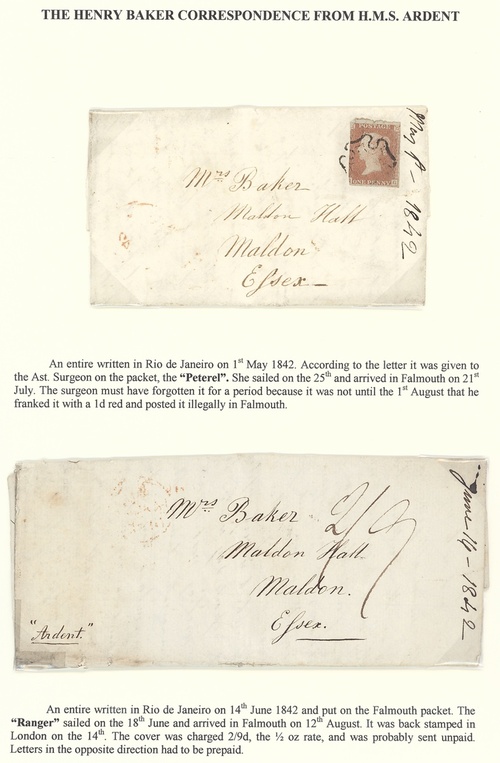 THE HENRY BAKER CORRESPONDENCE FROM H.M.S. ARDENT
POSTAGE
ONE PENNY
May 1st - 1842
Mrs Baker
Maldon Hall
Maldon
Essex
An entire written in Rio de Janeiro on 1st May 1842. According to the letter it was given to
the Ast. Surgeon on the packet, the "Peterel". She sailed on the 25th and arrived in Falmouth on 21st
July. The surgeon must have forgotten it for a period because it was not until the 1st August that he
franked it with a 1d red and posted it illegally in Falmouth.
June 14 - 1842
Mrs Baker
2/9
Maldon Hall.
Maldon.
Essex.
"Ardent."
An entire written in Rio de Janeiro on 14th June 1842 and put on the Falmouth packet. The
"Ranger" sailed on the 18th June and arrived in Falmouth on 12th August. It was back stamped in
London on the 14th. The cover was charged 2/9d, the ½ oz rate, and was probably sent unpaid.
Letters in the opposite direction had to be prepaid.